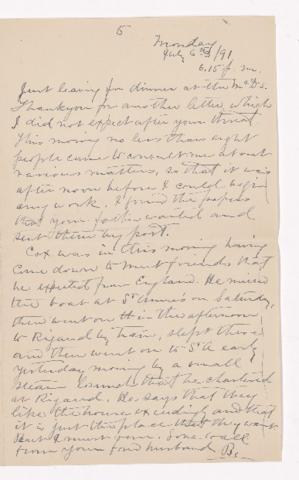 5
Monday
July 6th/91
6.15 p.m.
Just leaving for dinner at the McD's.
Thank you for another letter which
I did not expect after your threat
This morning no less than eight
people came to consult me about
various matters, so that it was
after noon before I could begin
any work. I found the papers
that your father wanted and
sent them by post.
Cox was in this morning having
come down to meet friends that
he expected from England. He missed
the boat at St Annes on Saturday,
then went on in the afternoon
to Rigaud by train, slept there
and then went on to St A early
yesterday morning by a small
steam launch that he chartered
at Rigaud. He says that they
like the house exceedingly and that
it is just the place that they want
But I must run. Love to all
from your fond husband B.